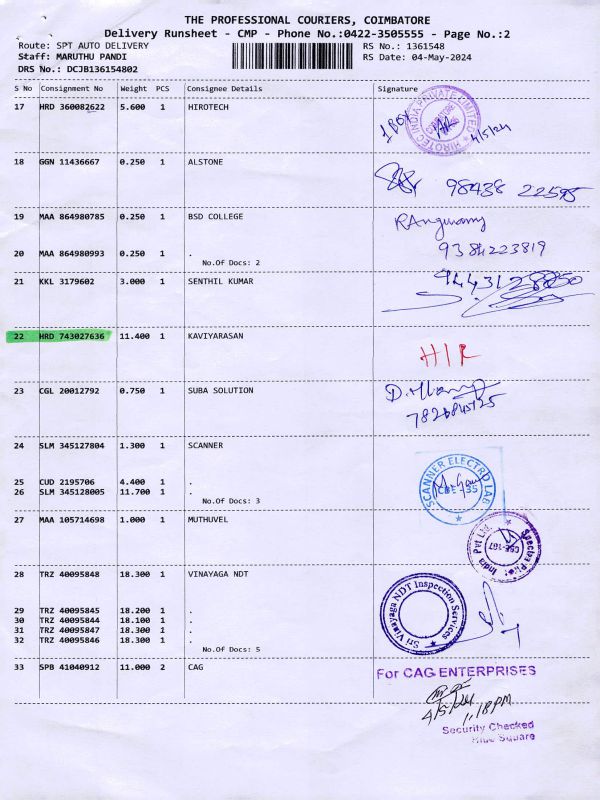 THE PROFESSIONAL COURIERS, COIMBATORE
Delivery Runsheet - CMP - Phone No.:0422-3505555 - Page No.:2
Route: SPT AUTO DELIVERY RS No.: 1361548
Staff: MARUTHU PANDI RS Date: 04-May-2024
DRS No.: DCJB136154802
S No Consignment No Weight PCS Consignee Details Signature
17 HRD 360082622 5.600 1 HIROTECH
1 BOX
HIROTEC INDIA PRIVATE LIMITED
4/5/24
18 GGN 11436667 0.250 1 ALSTONE
98438 22595
19 MAA 864980785 0.250 1 BSD COLLEGE
9384223819
20 MAA 864980993 0.250 1 .
No.Of Docs: 2
21 KKL 3179602 3.000 1 SENTHIL KUMAR
22 HRD 743027636 11.400 1 KAVIYARASAN
H/R
23 CGL 20012792 0.750 1 SUBA SOLUTION
24 SLM 345127804 1.300 1 SCANNER
SCANNER ELECTRO LAB
CBE - 35
25 CUD 2195706 4.400 1 .
26 SLM 345128005 11.700 1 .
No.Of Docs: 3
27 MAA 105714698 1.000 1 MUTHUVEL
India Pvt Ltd.
28 TRZ 40095848 18.300 1 VINAYAGA NDT
Sri Vinayaga NDT Inspection Services
29 TRZ 40095845 18.200 1 .
30 TRZ 40095844 18.100 1 .
31 TRZ 40095847 18.300 1 .
32 TRZ 40095846 18.300 1 .
No.Of Docs: 5
33 SPB 41040912 11.000 2 CAG
For CAG ENTERPRISES
4/5/24
1.18PM
Security Checked
Blue Square